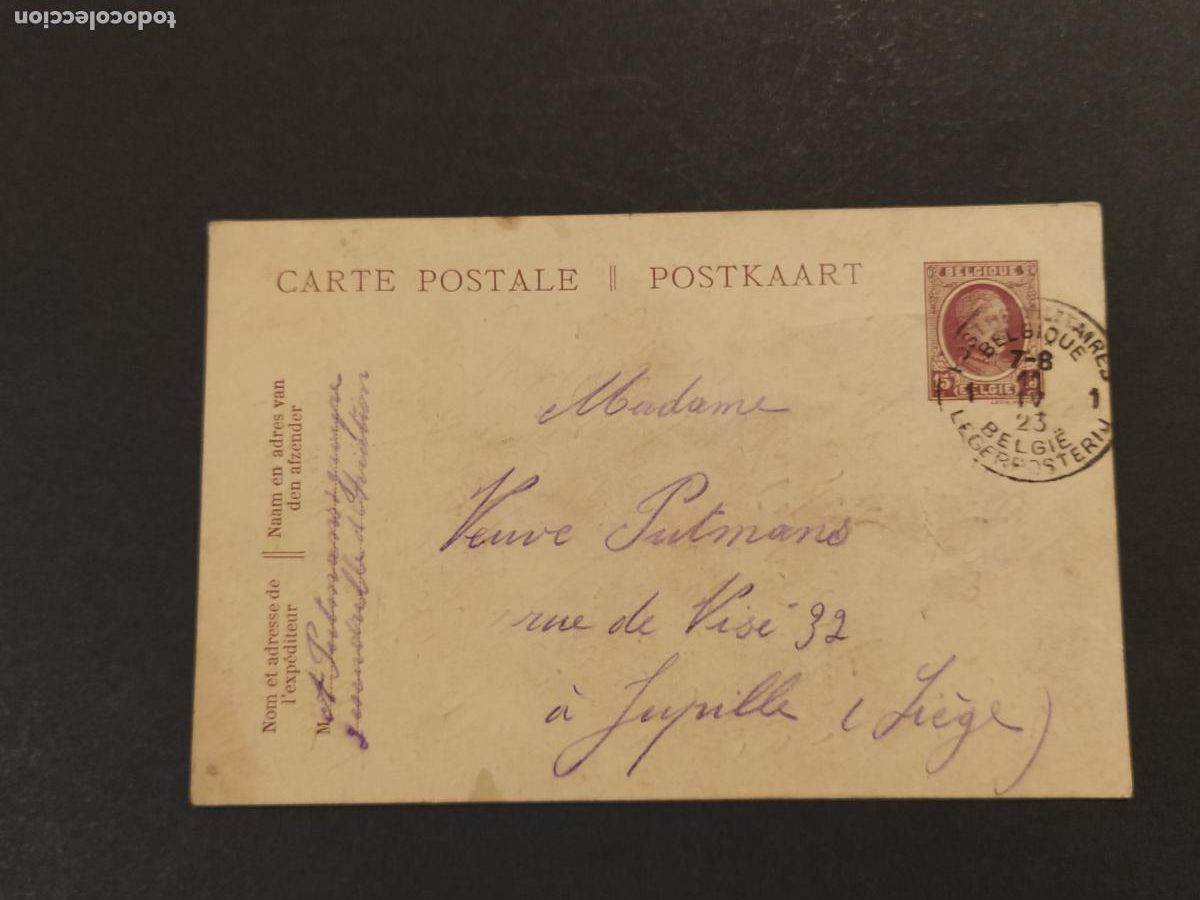 todocoleccion
CARTE POSTALE || POSTKAART
BELGIQUE
15
BELGIË
POSTES MILITAIRES
BELGIQUE
7-8
1 IV 1
23
BELGIË
LEGERPOSTERIJ
Madame
Veuve Putmans
rue de Visé 32
à Jupille (Liège)
Nom et adresse de || Naam en adres van
l'expéditeur den afzender
M Putmans